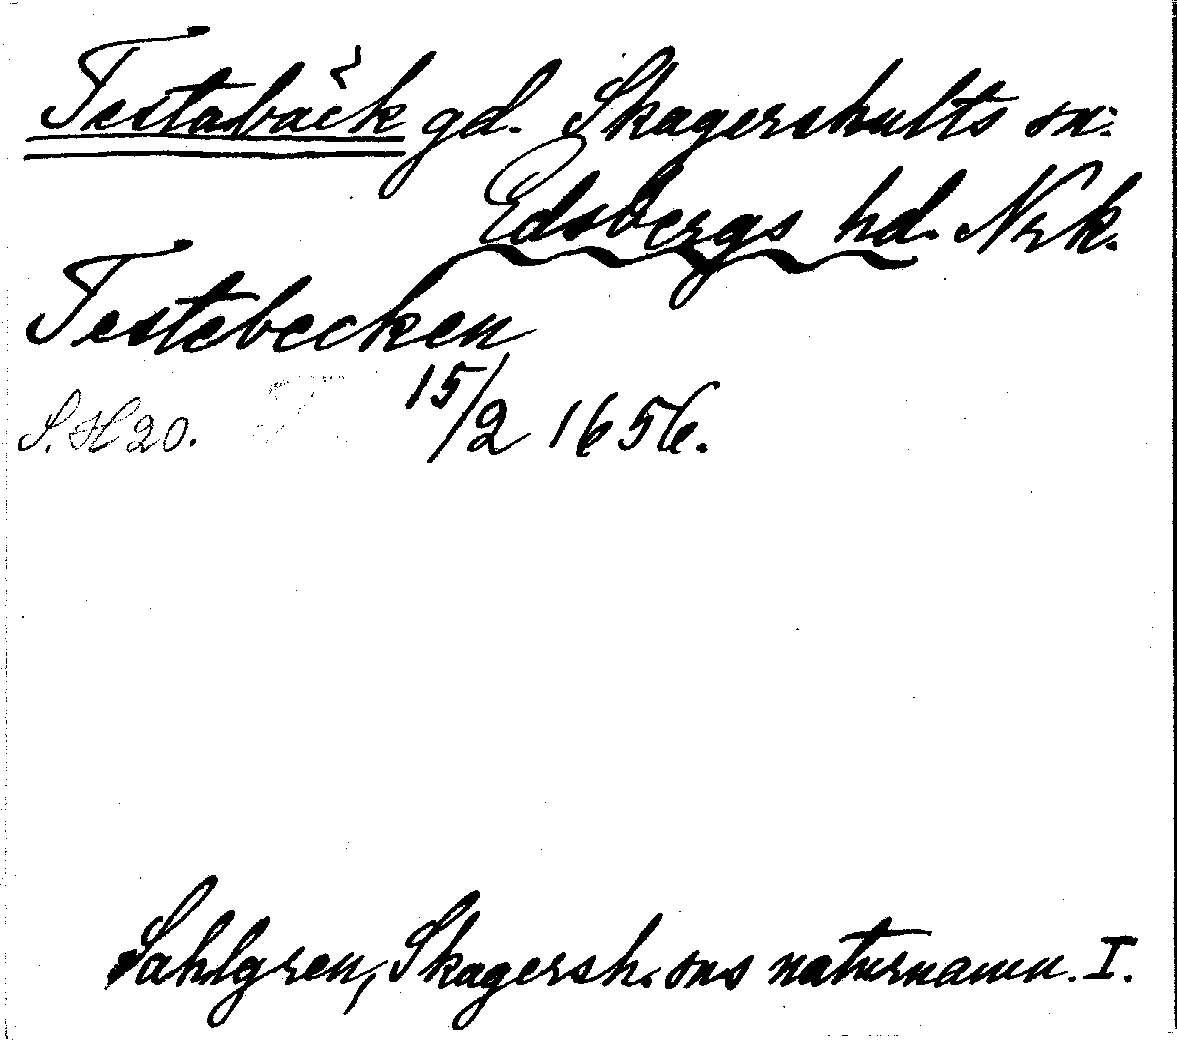 Testabäck gd. Skagershults sn:
Edsbergs hd. Nrk.
Testebecken
S. H 20. 15/2 1656.
Sahlgren, Skagersh. sns naturnamn. I.